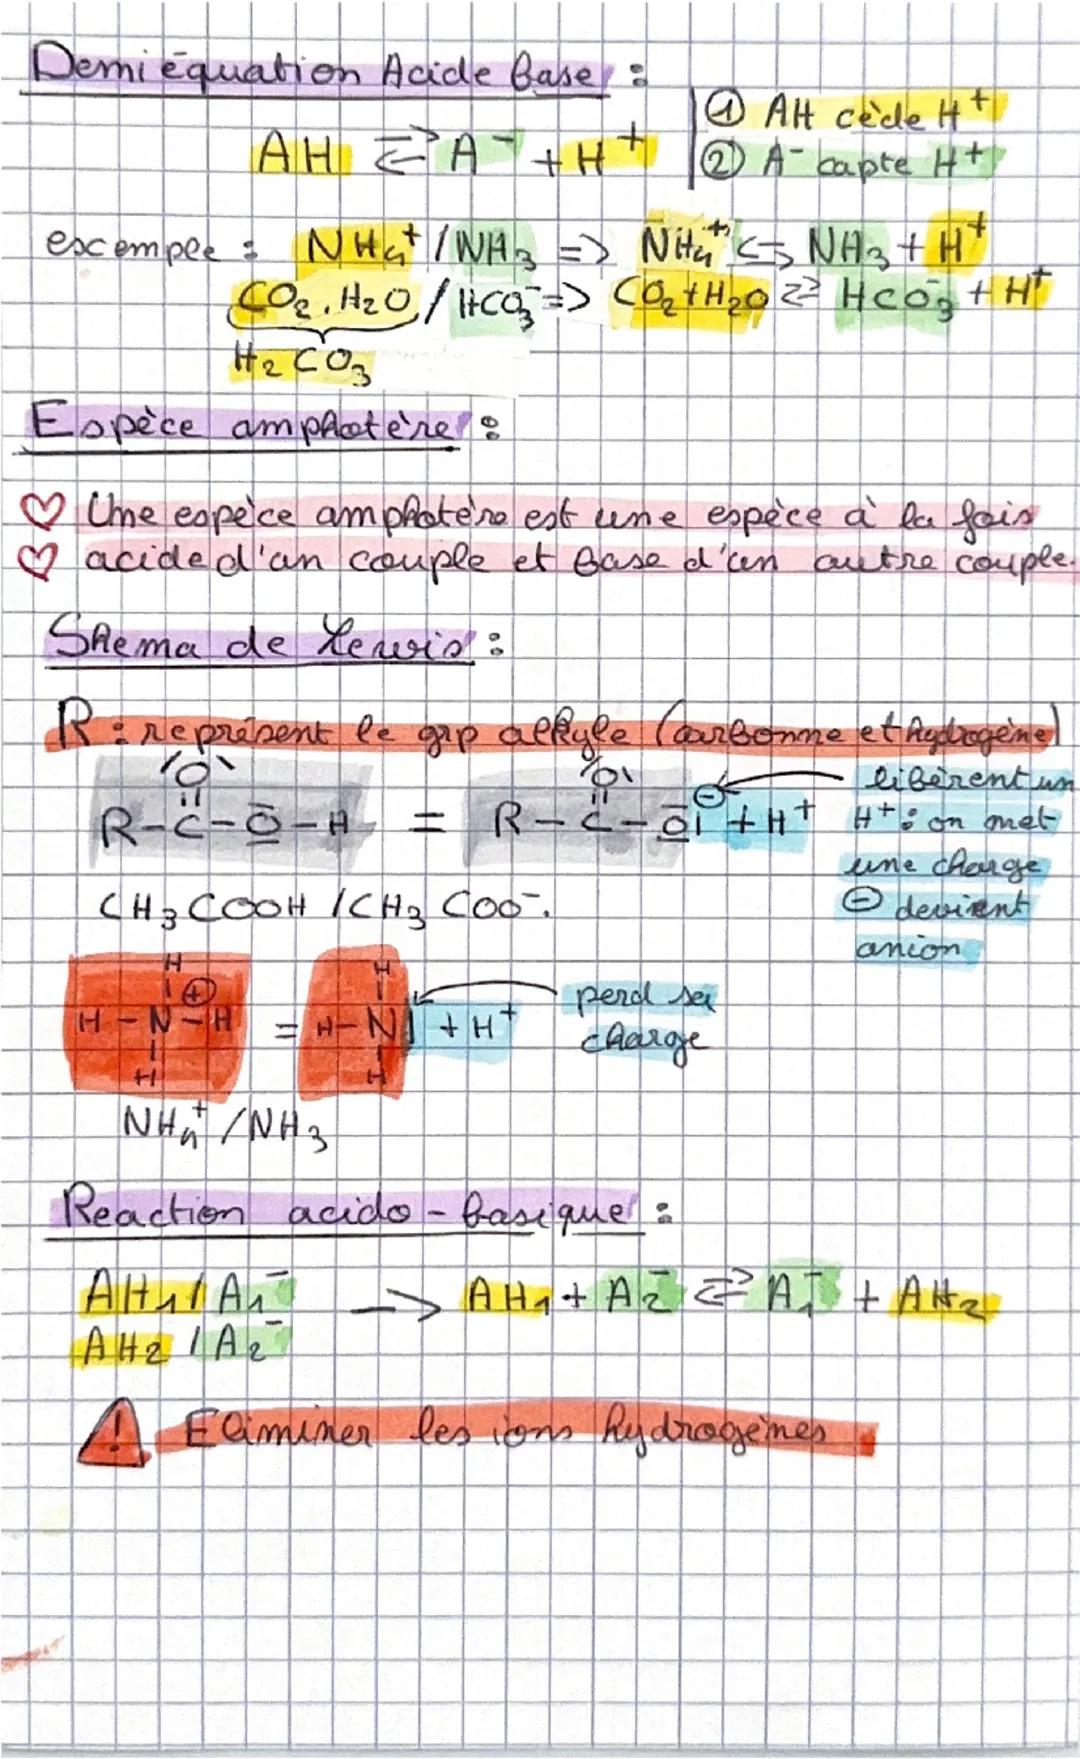 Demi équation Acide Base :
AH ⇄ A⁻ + H⁺
① AH cède H⁺
② A⁻ capte H⁺
escemple : NH₄⁺ / NH₃ => NH₄⁺ ⇆ NH₃ + H⁺
CO₂, H₂O / HCO₃⁻ => CO₂ + H₂O ⇄ HCO₃⁻ + H⁺
H₂CO₃
Espèce amphotère :
♡ Une espèce amphotère est une espèce à la fois
♡ acide d'un couple et base d'un autre couple.
Shema de Lewis :
R : représent le grp alkyle (carbonne et hydrogène)
O O
R-C-O-H = R-C-O ⊖ + H⁺
libèrent un
H⁺ : on met
une charge
⊖ devient
anion
CH₃COOH / CH₃COO⁻.
H H
H-N-H ⊕ = H-N| + H⁺
H H
perd sa
charge
NH₄⁺ / NH₃
Reaction acido-basique :
AH₁ / A₁⁻ → AH₁ + A₂⁻ ⇄ A₁⁻ + AH₂
AH₂ / A₂⁻
! Eliminer les ions hydrogènes